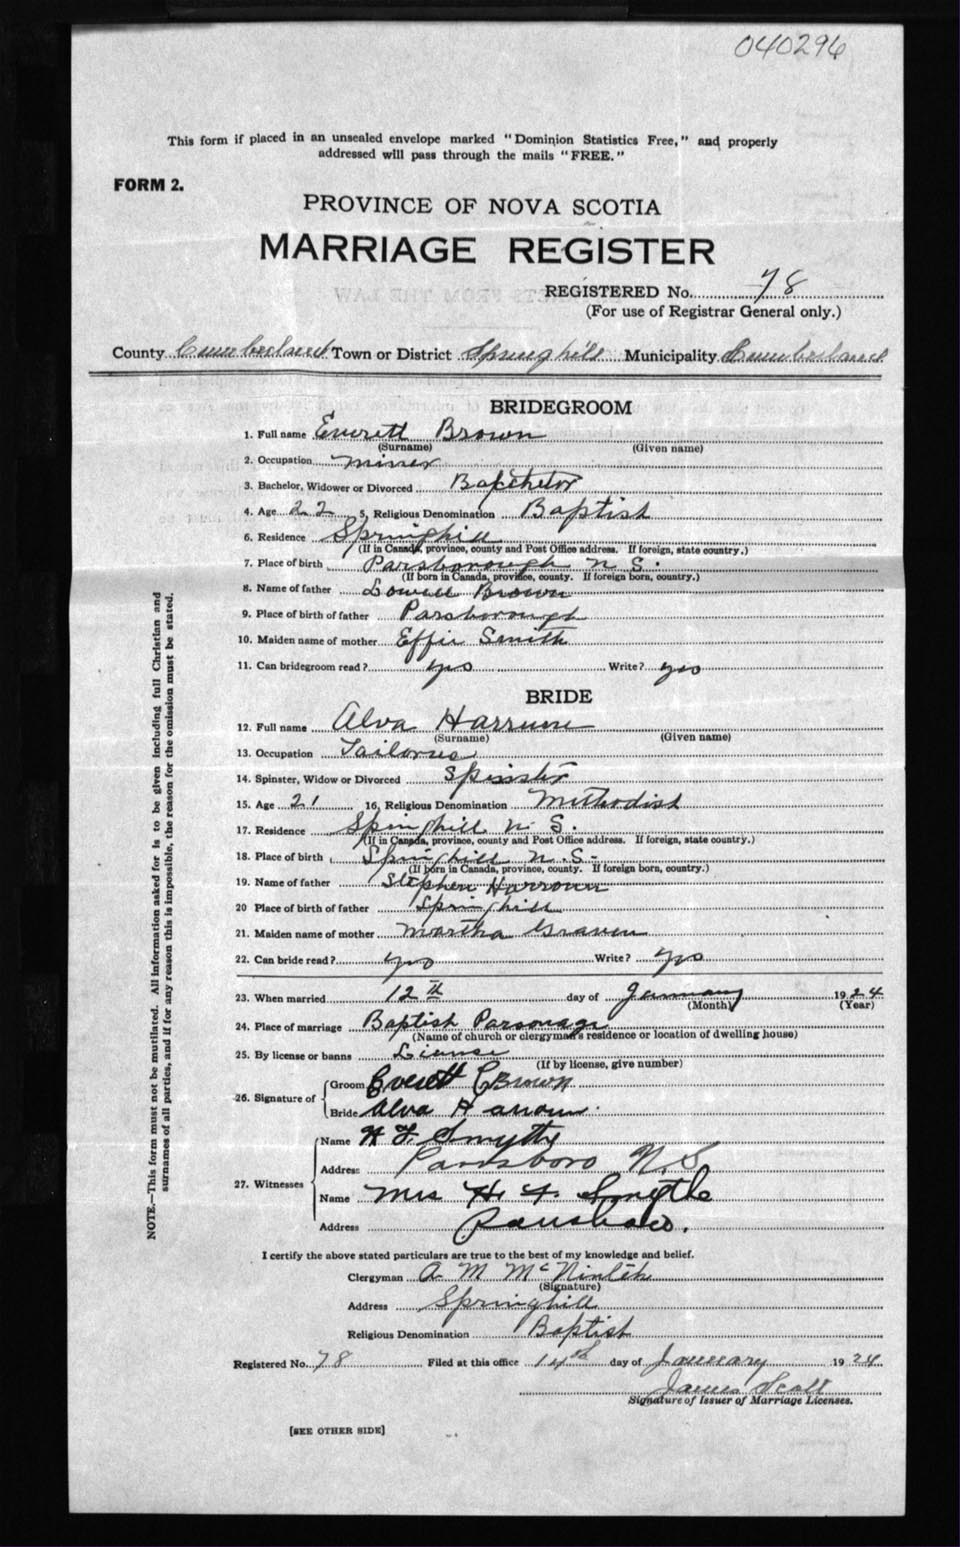 040296
This form if placed in an unsealed envelope marked "Dominion Statistics Free," and properly
addressed will pass through the mails "FREE."
FORM 2.
PROVINCE OF NOVA SCOTIA
MARRIAGE REGISTER
REGISTERED No. 78
(For use of Registrar General only.)
County Cumberland Town or District Springhill Municipality Cumberland
BRIDEGROOM
1. Full name Everett Brown
(Surname) (Given name)
2. Occupation miner
3. Bachelor, Widower or Divorced Batchelor
4. Age 22 5. Religious Denomination Baptist
6. Residence Springhill
(If in Canada, province, county and Post Office address. If foreign, state country.)
7. Place of birth Parsborough N. S.
(If born in Canada, province, county. If foreign born, country.)
8. Name of father Lowell Brown
9. Place of birth of father Parsborough
10. Maiden name of mother Effie Smith
11. Can bridegroom read? yes Write? yes
BRIDE
12. Full name Alva
(Surname) (Given name)
13. Occupation Tailoress
14. Spinster, Widow or Divorced Spinster
15. Age 21 16. Religious Denomination Methodist
17. Residence Springhill N. S.
(If in Canada, province, county and Post Office address. If foreign, state country.)
18. Place of birth Springhill N. S.
(If born in Canada, province, county. If foreign born, country.)
19. Name of father Stephen
20 Place of birth of father Springhill
21. Maiden name of mother Martha
22. Can bride read? yes Write? yes
23. When married 12th day of January 1924
(Month) (Year)
24. Place of marriage Baptist Parsonage
(Name of church or clergyman's residence or location of dwelling house)
25. By license or banns License
(If by license, give number)
26. Signature of Groom Everett Brown
Bride Alva
27. Witnesses Name H F Smyth
Address Parrsboro N.S
Name Mrs H. F. Smyth
Address Parrsboro.
I certify the above stated particulars are true to the best of my knowledge and belief.
Clergyman A M
(Signature)
Address Springhill
Religious Denomination Baptist
Registered No. 78 Filed at this office 14th day of January 1924
James Scott
Signature of Issuer of Marriage Licenses.
[SEE OTHER SIDE]
NOTE.—This form must not be mutilated. All information asked for is to be given including full Christian and
surnames of all parties, and if for any reason this is impossible, the reason for the omission must be stated.